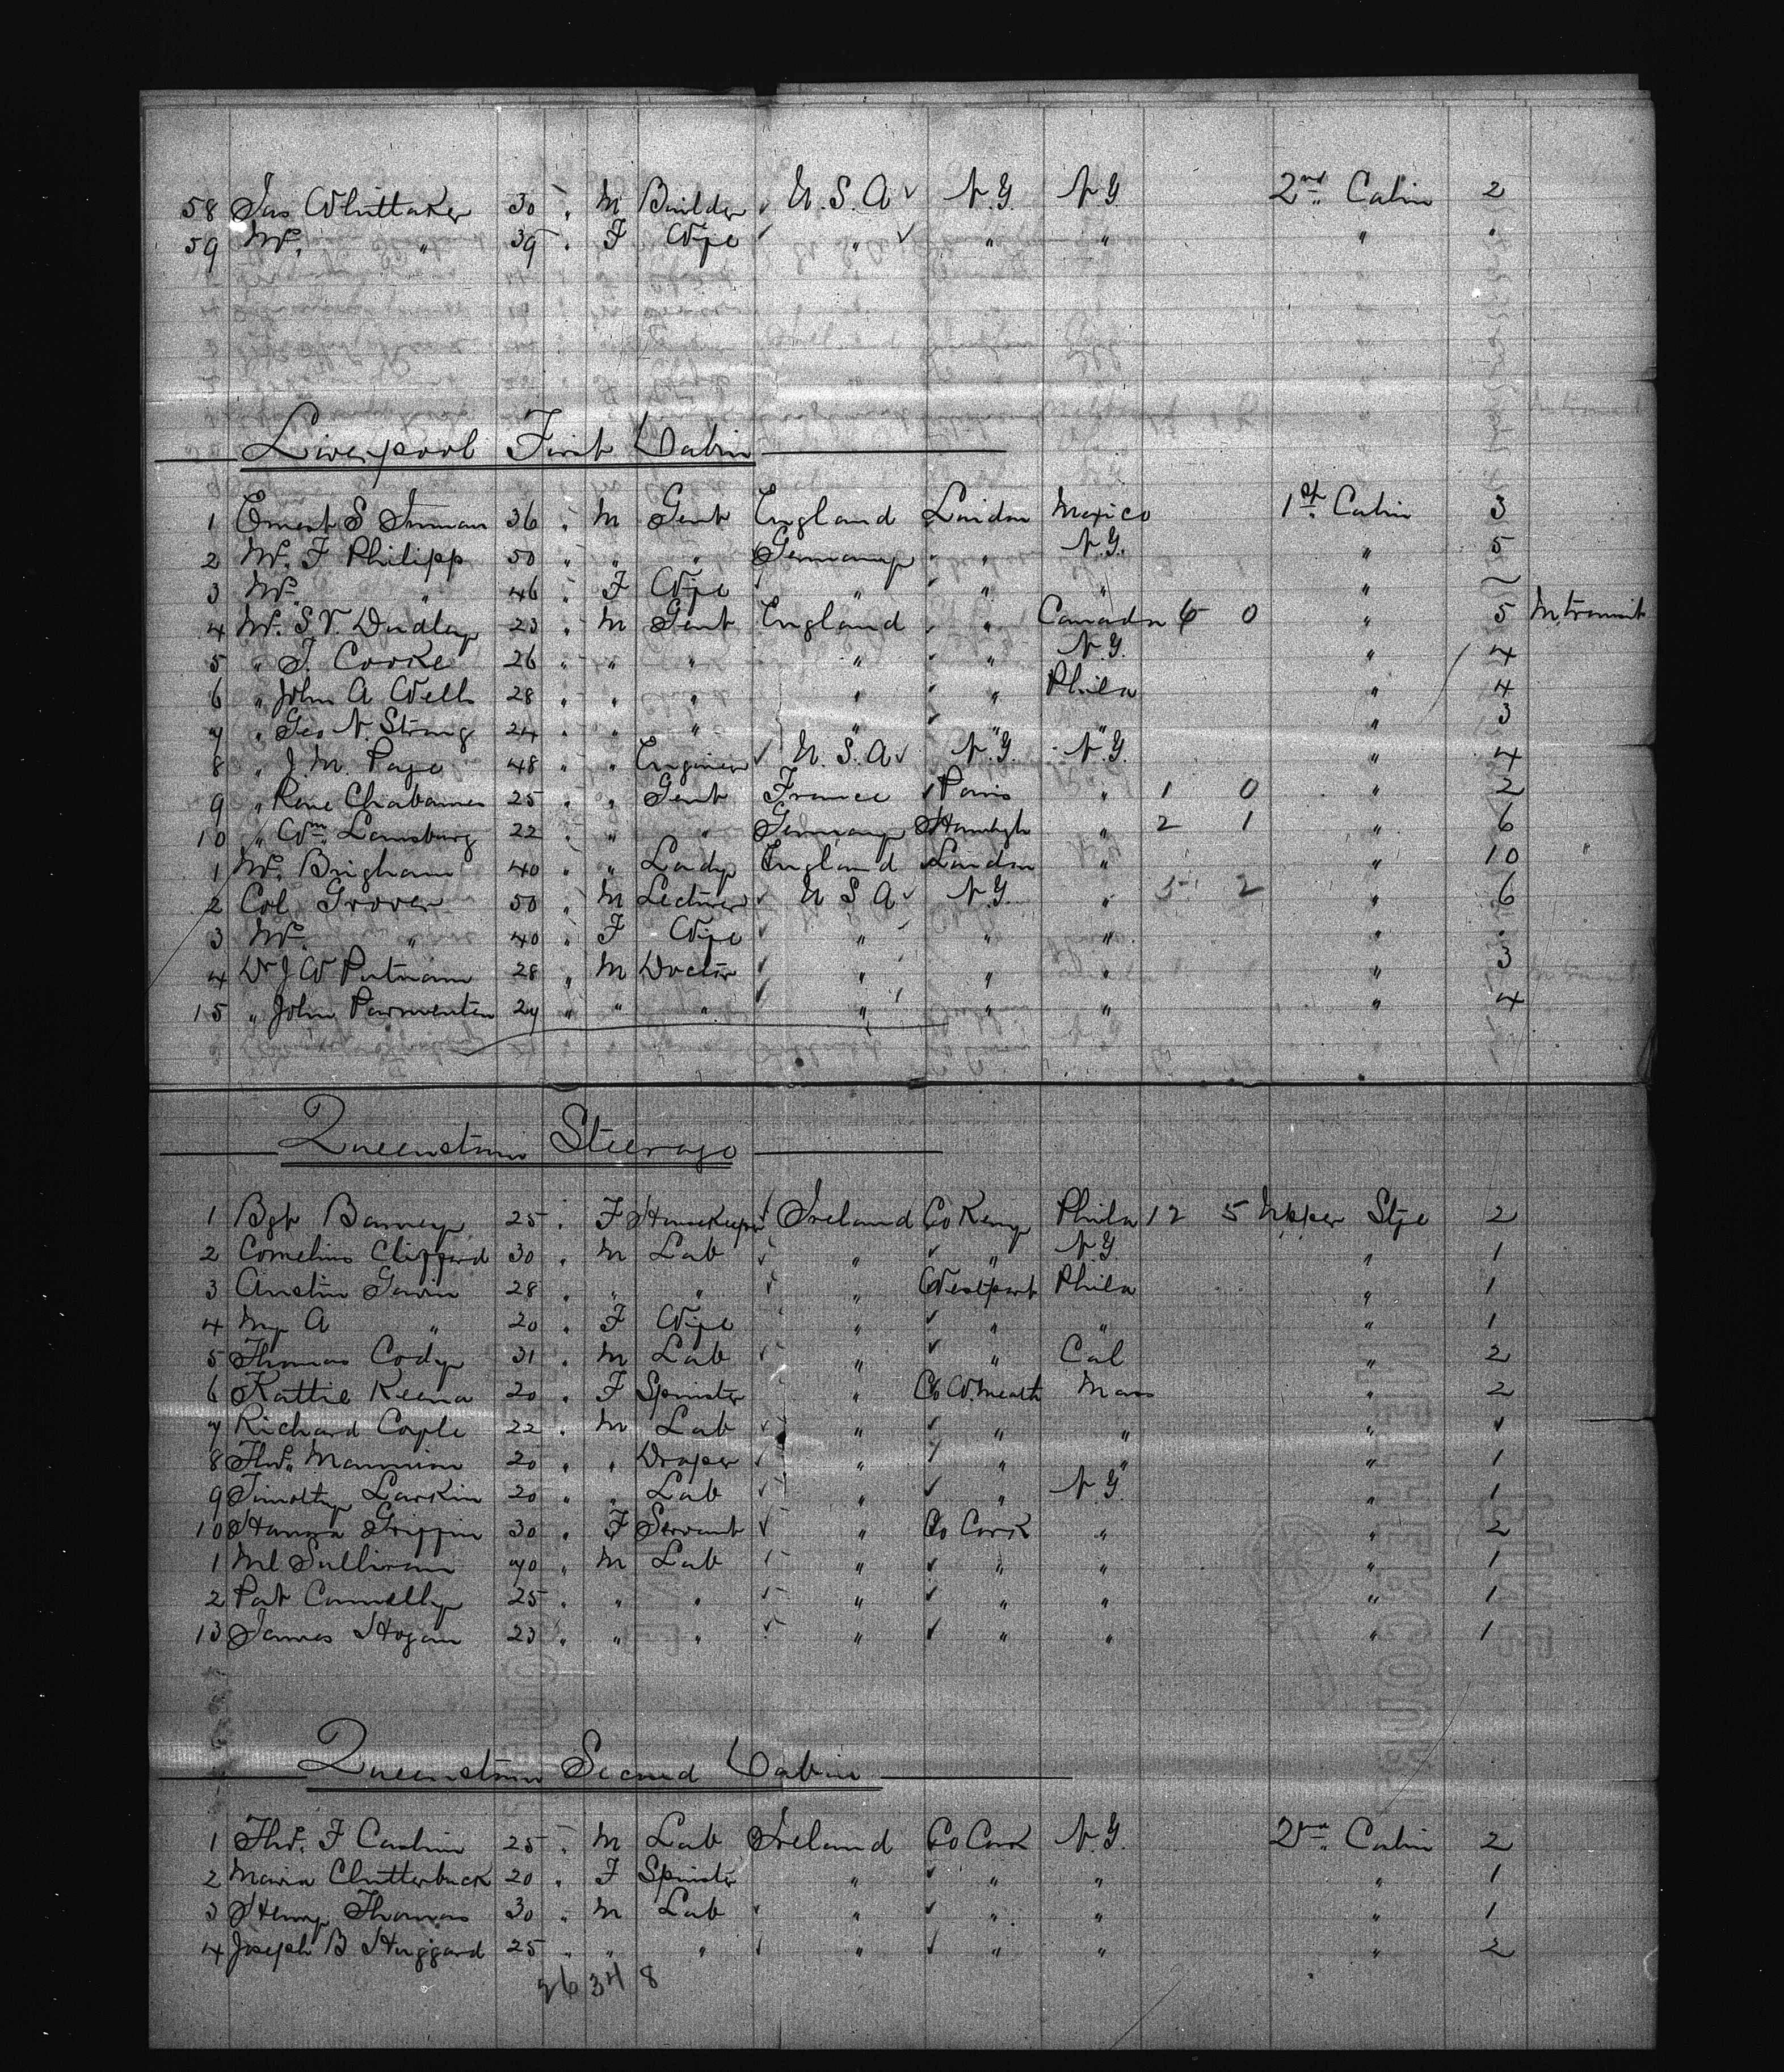 58 Jas Whittaker 30 " M Builder U.S.A N.Y. N.Y. 2nd Cabin 2
59 Mrs. " 39 " F Wife " " " " "
Liverpool First Cabin
1 Ernest S Inman 36 " M Gent England London Mexico 1st Cabin 3
2 Mr. F Philipp 50 " " " Germany " N.Y. " 5
3 Mrs. " 46 " F Wife " " " "
4 Mr. S.V. Dudley 23 " M Gent England " Canada 6 0 " 5 In transit
5 " J. Cooke 26 " " " " " N.Y. " 4
6 " John A Wells 28 " " " " " Phila " 4
7 " Geo N. Strang 24 " " " " " " " 3
8 " J.M. Page 48 " " Engineer U.S.A N.Y. N.Y. " 4
9 " Rene 25 " " Gent France Paris " 1 0 " 2
10 " Wm. Lamsburg 22 " " " Germany " 2 1 " 6
1 Mrs. Brigham 40 " " Lady England London " " 10
2 Col Grover 50 " M Lecturer U S A N.Y. " 5 2 " 6
3 Mrs. " 40 " F Wife " " " " "
4 Dr J W Putnam 28 " M Doctor " " " " 3
15 " John Parmenter 24 " " " " " " " 4
Queenstown Steerage
1 Bgt 25 " F Housekeeper Ireland Co Kerry Phila 12 5 Upper Stge 2
2 Cornelius Clifford 30 " M Lab " " N.Y. " 1
3 Austin Gavin 28 " " " " Westport Phila " 1
4 My A " 20 " F Wife " " " " 1
5 Thomas Cody 31 " M Lab " " Cal " 2
6 Kattie Keena 20 " F Spinster " Co W.Meath Mass " 2
7 Richard Coyle 22 " M Lab " " " " 1
8 Thos. Mannion 20 " " Draper " " " " 1
9 Timothy Larkin 20 " " Lab " " N.Y. " 1
10 Hanora Griffin 30 " F Servant " Co Cork " " 2
1 Ml Sullivan 40 " M Lab " " " " 1
2 Pat Connelly 25 " " " " " " " 1
13 James Hogan 23 " " " " " " " 1
Queenstown Second Cabin
1 Thos. F Cashin 25 " M Lab Ireland Co Cork N.Y. 2nd Cabin 2
2 Maria Clutterbuck 20 " F Spinster " " " " 1
3 Henry Thomas 30 " M Lab " " " " 1
4 Joseph B Huggard 25 " " " " " " " 2
26 34 8